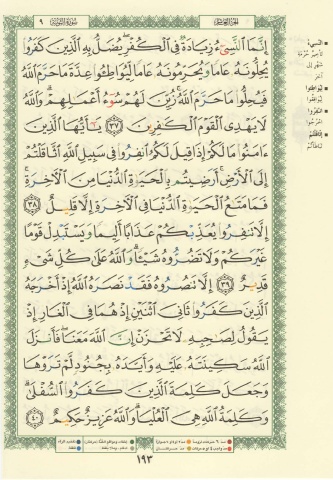 الجزء العاشر
سورة التوبة
٩
إِنَّمَا ٱلنَّسِىٓءُ زِيَادَةٌ فِى ٱلْكُفْرِ يُضَلُّ بِهِ ٱلَّذِينَ كَفَرُوا۟
يُحِلُّونَهُۥ عَامًا وَيُحَرِّمُونَهُۥ عَامًا لِّيُوَاطِـُٔوا۟ عِدَّةَ مَا حَرَّمَ ٱللَّهُ
فَيُحِلُّوا۟ مَا حَرَّمَ ٱللَّهُ زُيِّنَ لَهُمْ سُوٓءُ أَعْمَـٰلِهِمْ وَٱللَّهُ
لَا يَهْدِى ٱلْقَوْمَ ٱلْكَـٰفِرِينَ ٣٧ يَـٰٓأَيُّهَا ٱلَّذِينَ
ءَامَنُوا۟ مَا لَكُمْ إِذَا قِيلَ لَكُمُ ٱنفِرُوا۟ فِى سَبِيلِ ٱللَّهِ ٱثَّاقَلْتُمْ
إِلَى ٱلْأَرْضِ أَرَضِيتُم بِٱلْحَيَوٰةِ ٱلدُّنْيَا مِنَ ٱلْـَٔاخِرَةِ
فَمَا مَتَـٰعُ ٱلْحَيَوٰةِ ٱلدُّنْيَا فِى ٱلْـَٔاخِرَةِ إِلَّا قَلِيلٌ ٣٨
إِلَّا تَنفِرُوا۟ يُعَذِّبْكُمْ عَذَابًا أَلِيمًا وَيَسْتَبْدِلْ قَوْمًا
غَيْرَكُمْ وَلَا تَضُرُّوهُ شَيْـًٔا وَٱللَّهُ عَلَىٰ كُلِّ شَىْءٍ
قَدِيرٌ ٣٩ إِلَّا تَنصُرُوهُ فَقَدْ نَصَرَهُ ٱللَّهُ إِذْ أَخْرَجَهُ
ٱلَّذِينَ كَفَرُوا۟ ثَانِىَ ٱثْنَيْنِ إِذْ هُمَا فِى ٱلْغَارِ إِذْ
يَقُولُ لِصَـٰحِبِهِۦ لَا تَحْزَنْ إِنَّ ٱللَّهَ مَعَنَا فَأَنزَلَ
ٱللَّهُ سَكِينَتَهُۥ عَلَيْهِ وَأَيَّدَهُۥ بِجُنُودٍ لَّمْ تَرَوْهَا
وَجَعَلَ كَلِمَةَ ٱلَّذِينَ كَفَرُوا۟ ٱلسُّفْلَىٰ
وَكَلِمَةُ ٱللَّهِ هِىَ ٱلْعُلْيَا وَٱللَّهُ عَزِيزٌ حَكِيمٌ ٤٠
١٩٣
النسيء
ليواطئوا
انفروا
اثاقلتم